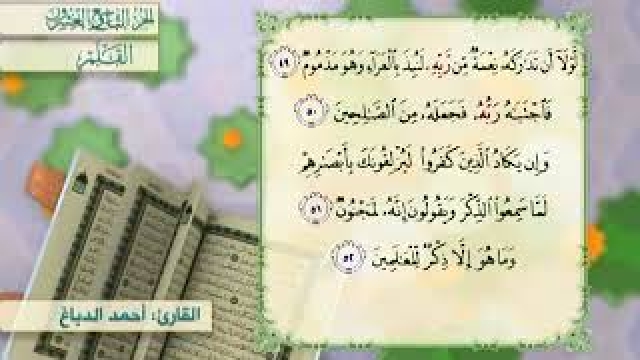 الجزء التاسع والعشرون
القلم
لَّوْلَآ أَن تَدَٰرَكَهُۥ نِعْمَةٌ مِّن رَّبِّهِۦ لَنُبِذَ بِٱلْعَرَآءِ وَهُوَ مَذْمُومٌ ٤٩
فَٱجْتَبَٰهُ رَبُّهُۥ فَجَعَلَهُۥ مِنَ ٱلصَّٰلِحِينَ ٥٠
وَإِن يَكَادُ ٱلَّذِينَ كَفَرُوا۟ لَيُزْلِقُونَكَ بِأَبْصَٰرِهِمْ
لَمَّا سَمِعُوا۟ ٱلذِّكْرَ وَيَقُولُونَ إِنَّهُۥ لَمَجْنُونٌ ٥١
وَمَا هُوَ إِلَّا ذِكْرٌ لِّلْعَٰلَمِينَ ٥٢
القارئ: أحمد الدباغ